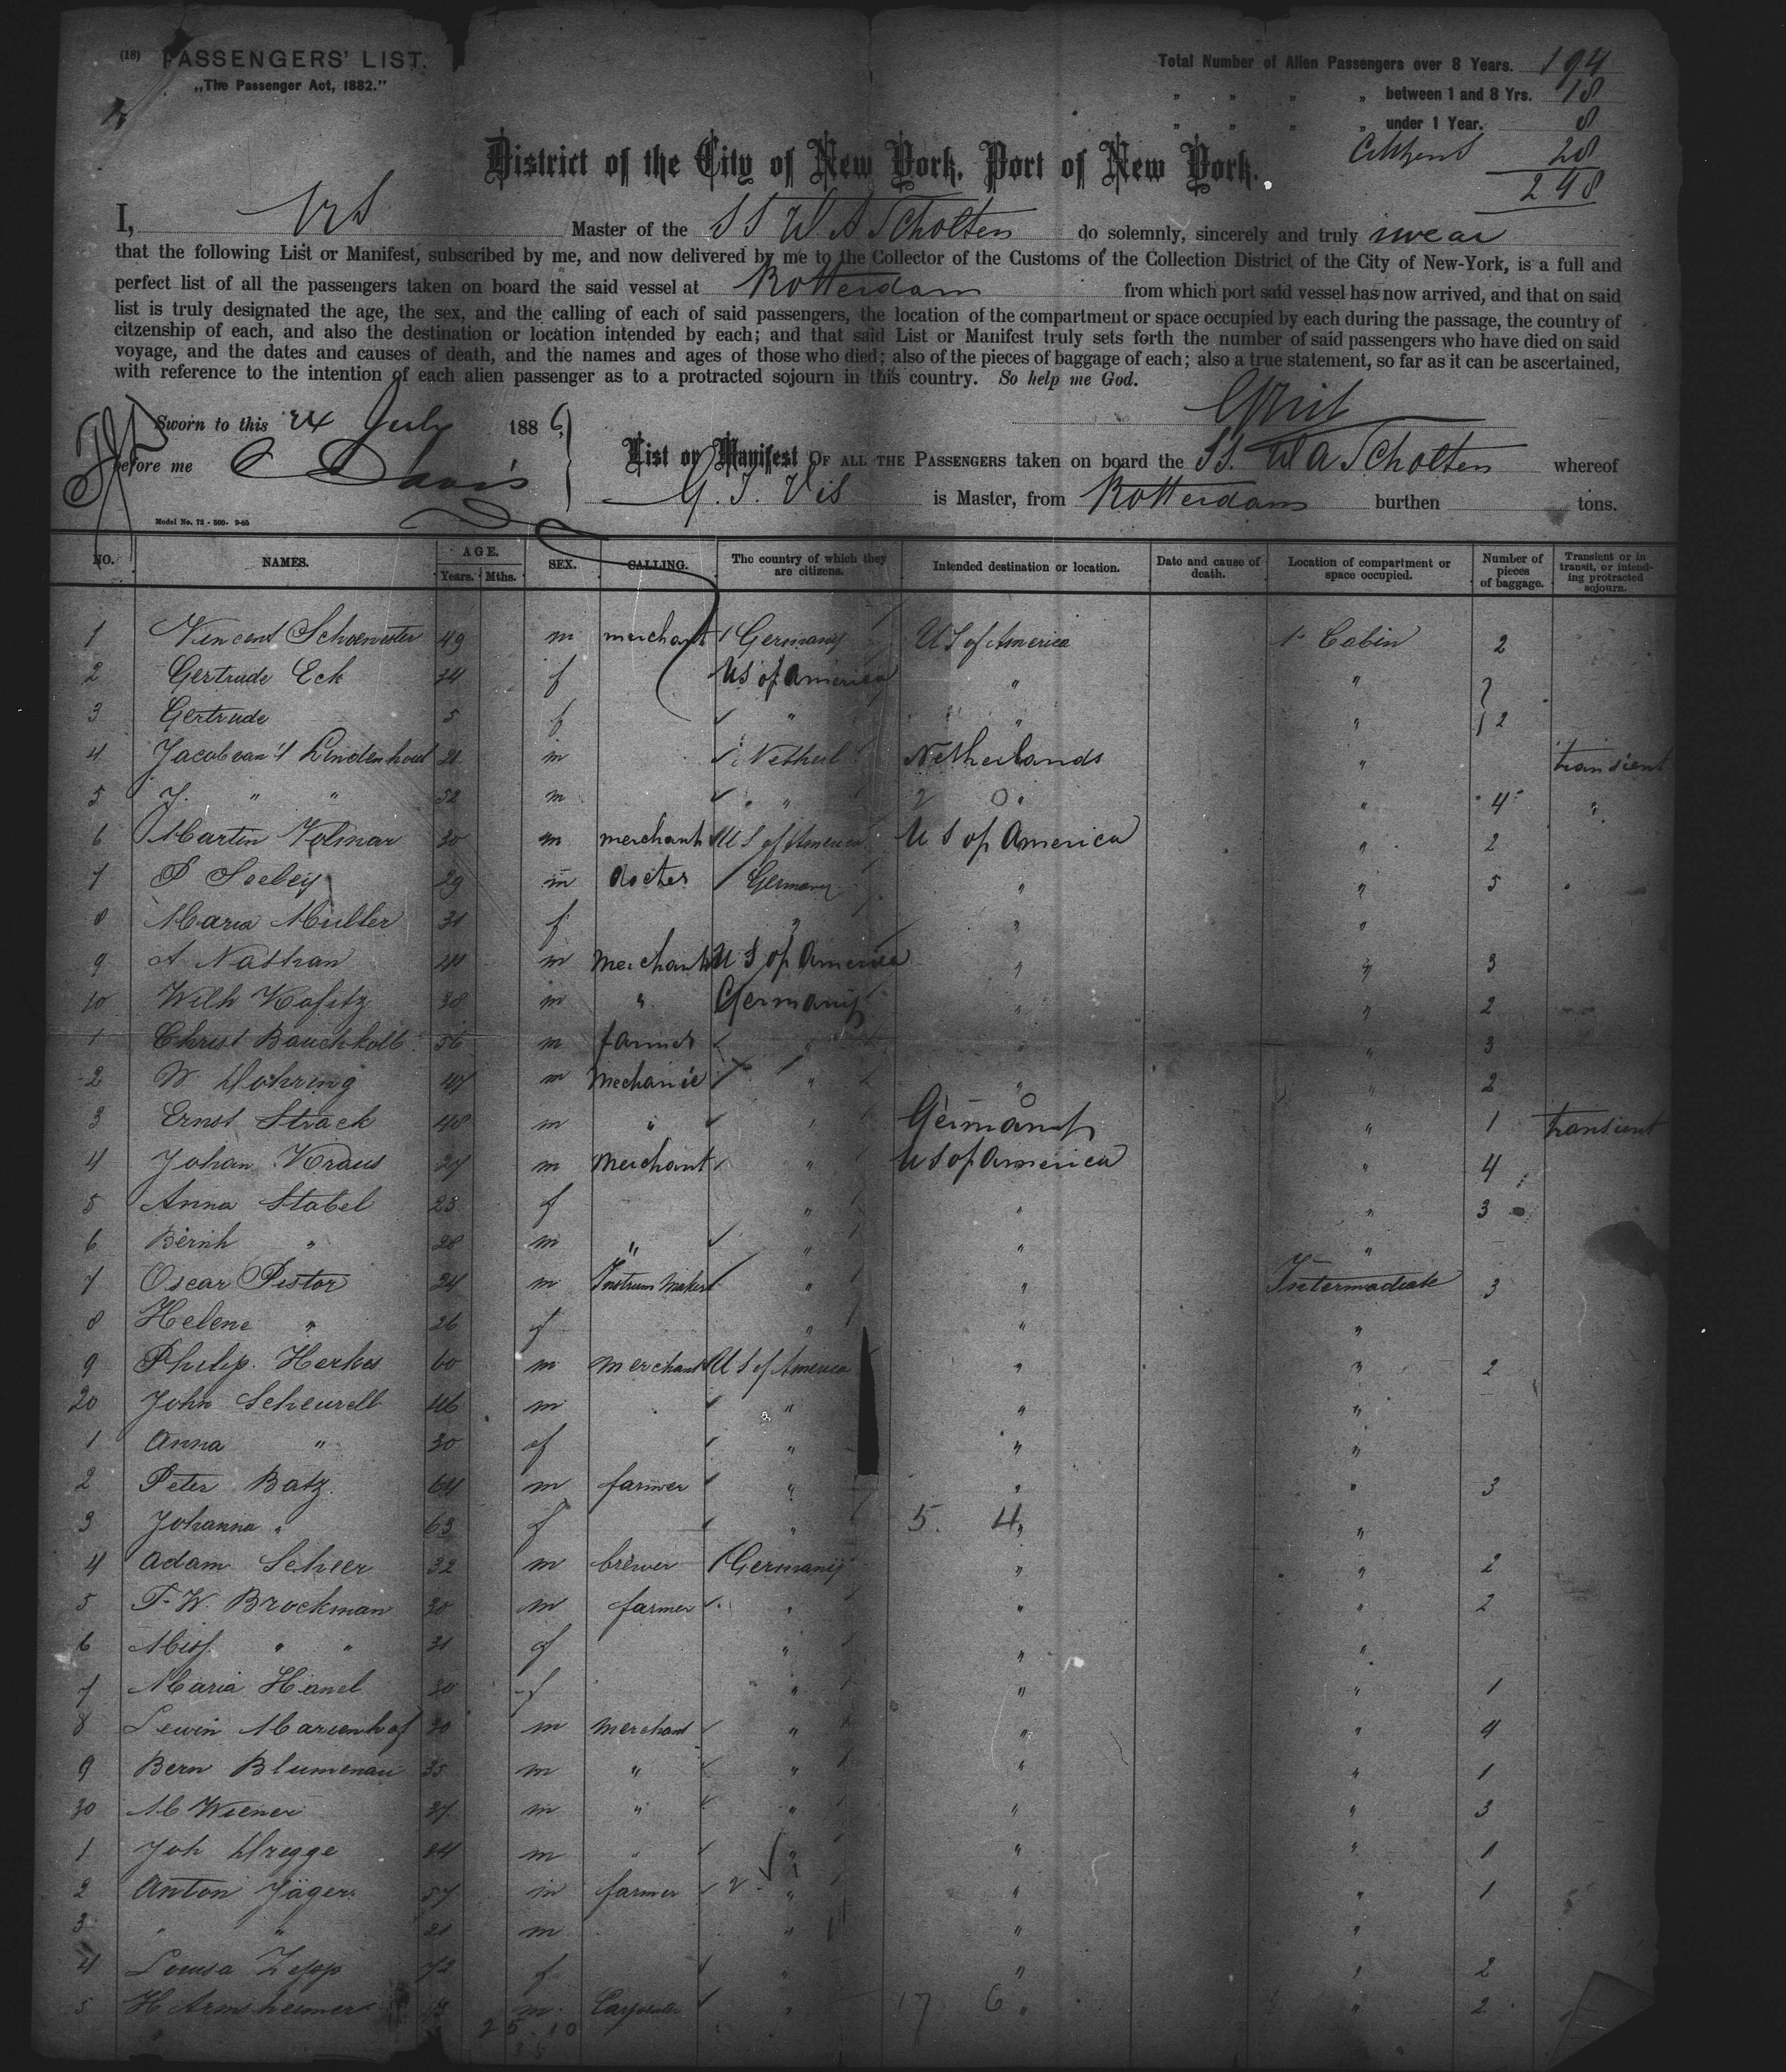 (18) PASSENGERS' LIST.
„The Passenger Act, 1882."
Total Number of Alien Passengers over 8 Years. 194
„ „ „ „ between 1 and 8 Yrs. 18
„ „ „ „ under 1 Year. 8
Citizens 28
248
District of the City of New York, Port of New York.
I, Vis Master of the SS W. A Scholten do solemnly, sincerely and truly swear
that the following List or Manifest, subscribed by me, and now delivered by me to the Collector of the Customs of the Collection District of the City of New-York, is a full and
perfect list of all the passengers taken on board the said vessel at Rotterdam from which port said vessel has now arrived, and that on said
list is truly designated the age, the sex, and the calling of each of said passengers, the location of the compartment or space occupied by each during the passage, the country of
citzenship of each, and also the destination or location intended by each; and that said List or Manifest truly sets forth the number of said passengers who have died on said
voyage, and the dates and causes of death, and the names and ages of those who died; also of the pieces of baggage of each; also a true statement, so far as it can be ascertained,
with reference to the intention of each alien passenger as to a protracted sojourn in this country. So help me God.
Sworn to this 24 July 1886
before me C Davis
List or Manifest OF ALL THE PASSENGERS taken on board the SS. W A Scholten whereof
G. J. Vis is Master, from Rotterdam burthen tons.
Model No. 72 - 500- 9-85
NO. NAMES. AGE. Years. Mths. SEX. CALLING. The country of which they are citizens. Intended destination or location. Date and cause of death. Location of compartment or space occupied. Number of pieces of baggage. Transient or in transit, or intending protracted sojourn.
1 Vincent Schoenwetter 49 m merchant Germany US of America 1 Cabin 2
2 Gertrude Eck f US of America " "
3 Gertrude 5 f " " " 2
4 Jacob van 't Lindenhout 21 m Netherl Netherlands " transient
5 J. " " 52 m " " " 4 "
6 Martin Volmar 30 m merchant U S of America U S of America " 2
7 P 29 m docter Germany " " 5
8 Maria Muller 31 f " " "
9 A Nathan m merchant U S of America " " 3
10 Wilh 38 m " Germany " " 2
1 Christ Bauchkolb 56 m farmer " " " 3
2 W. 47 m mechanic " " " 2
3 Ernst Strack 48 m " " Germany " 1 transient
4 Johan Kraus 27 m merchant " US of America " 4
5 Anna Stabel 23 f " " " 3
6 Bernh " 28 m " " " "
7 Oscar Pistor 24 m Instrum maker " " Intermadiate 3
8 Helene " 26 f " " "
9 Philip. Herkes 60 m merchant U S of America " " 2
20 John Scheurell 46 m " " "
1 Anna " 30 f " " "
2 Peter Batz 64 m farmer " " " 3
3 Johanna " 63 f " 5. 4 " "
4 Adam Scheer 32 m brewer Germany " " 2
5 F. W. Brockman 30 m farmer " " " 2
6 Miss " " 31 f " " "
7 Maria Hanel 30 f " " " 1
8 Lewin Marienhof 30 m merchant " " " 4
9 Bern Blumenau 35 m " " " " 1
30 M Wiener 37 m " " " " 3
1 Joh 24 m " " " " 1
2 Anton Jäger 57 m farmer " " " 1
3 " " 21 m " " "
4 Louisa Zepp 72 f " " " 2
5 H Armsheimer m " 17 6 " " 2
25 10
35